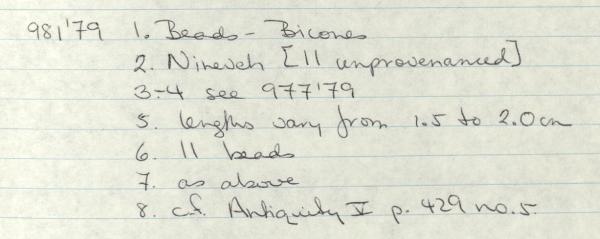 981'79 1. Beads - Bicones
2. Nineveh [11 unprovenanced]
3-4 see 977'79
5. lengths vary from 1.5 to 2.0cm
6. 11 beads
7. as above
8. cf. Antiquity V p. 429 no. 5.